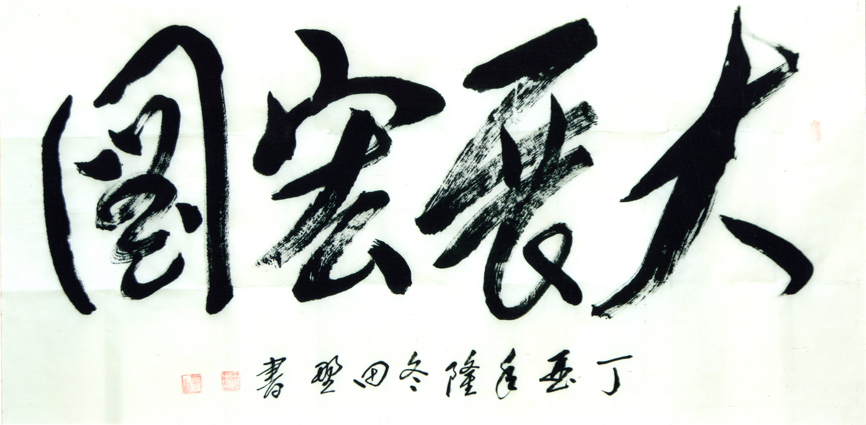 大展宏圖
丁亥年隆冬田野書